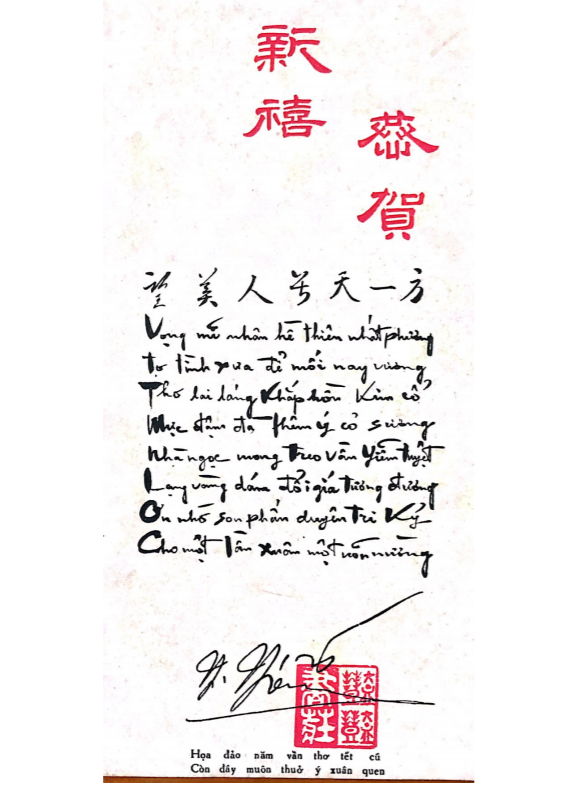 恭賀
新禧
望美人兮天一方
Vọng mĩ nhân hề thiên nhất phương
Tơ tình xưa để mối nay vương
Thơ lai láng khắp hồn Kim cổ
Mực đậm đà thêm ý cỏ sương
Nhả ngọc mong treo vần yểm tuyệt
Lạng vàng dám đổi giá tương đương
Ơn nhờ son phấn duyên tri kỷ
Cho một lần xuân một vấn nường
Họa đảo năm vần thơ tết cũ
Còn dây muôn thuở ý xuân quen